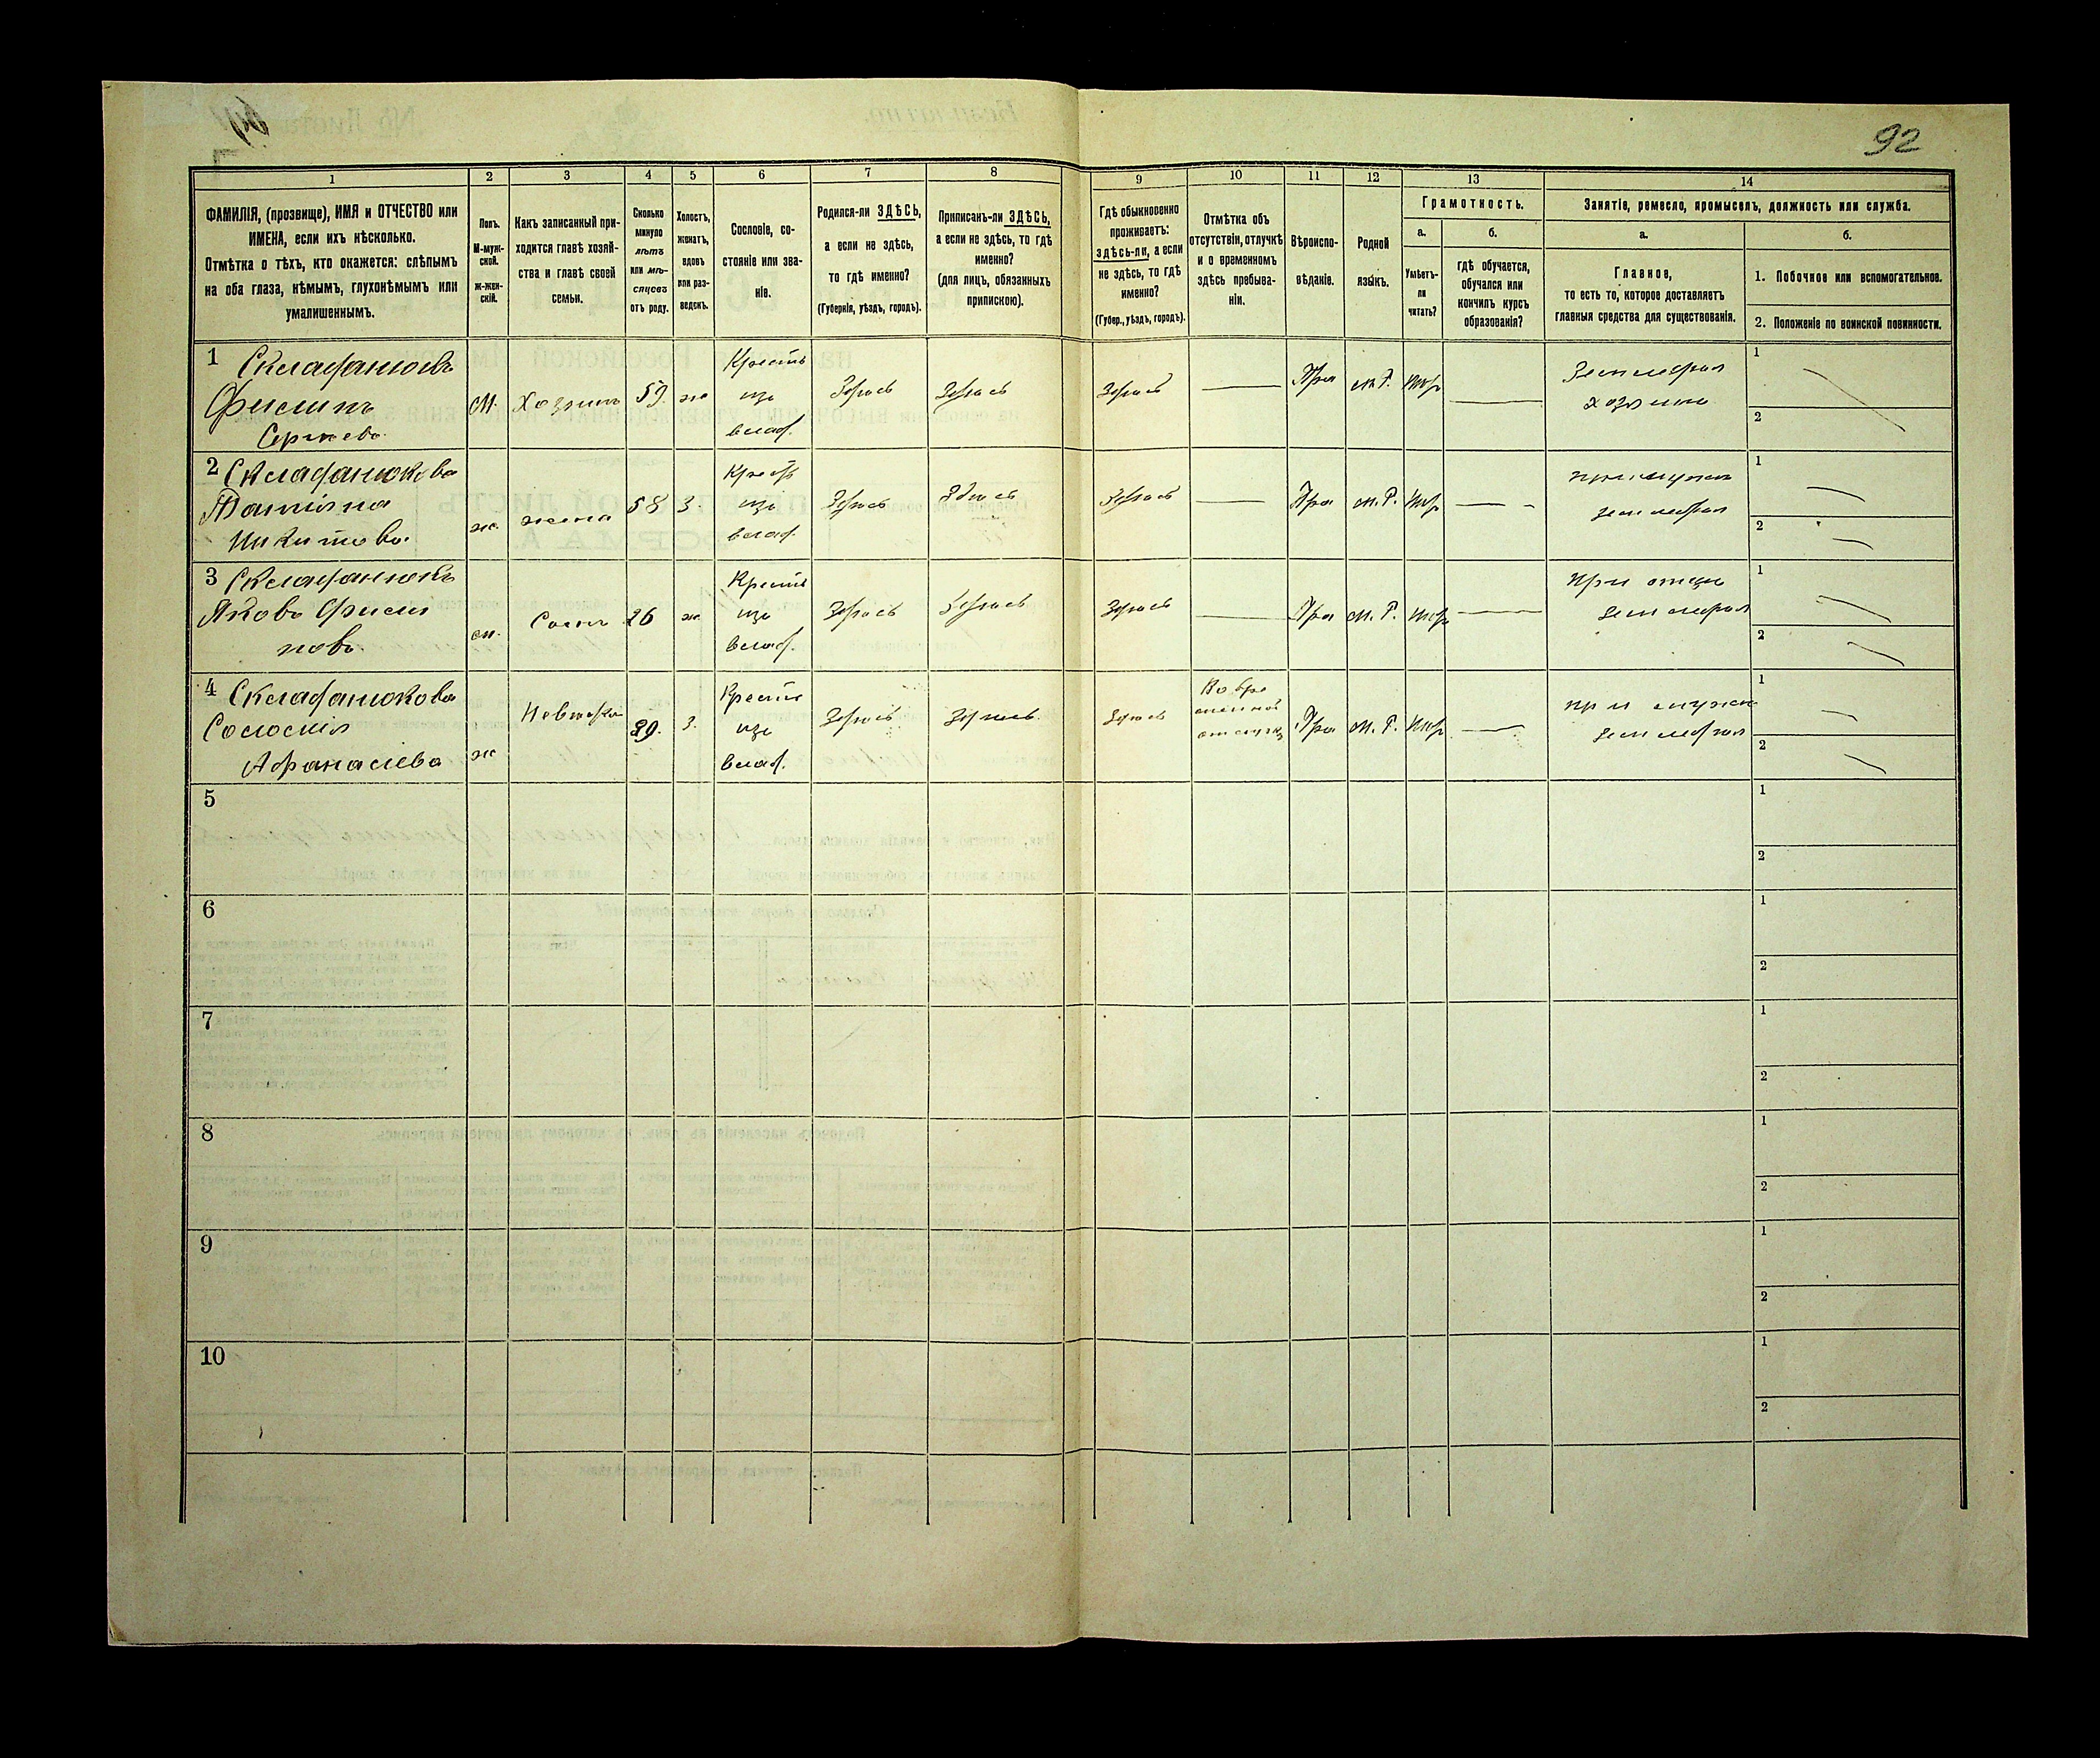 92
1 2 3 4 5 6 7 8 9 10 11 12 13 14
ФАМИЛІЯ, (прозвище), ИМЯ и ОТЧЕСТВО или
ИМЕНА, если ихъ нѣсколько.
Отмѣтка о тѣхъ, кто окажется: слѣпымъ
на оба глаза, нѣмымъ, глухонѣмымъ или
умалишеннымъ.
Полъ.
М-муж-
ской.
ж-жен-
скій.
Какъ записанный при-
ходится главѣ хозяй-
ства и главѣ своей
семьи.
Сколько
минуло
лѣтъ
или мѣ-
сяцевъ
отъ роду.
Холостъ,
женатъ,
вдовъ
или раз-
ведскъ.
Сословіе, со-
стояніе или зва-
ніе.
Родился-ли ЗДѢСЬ,
а если не здѣсь,
то гдѣ именно?
(Губернія, уѣздъ, городъ).
Приписанъ-ли ЗДѢСЬ,
а если не здѣсь, то гдѣ
именно?
(для лицъ, обязанныхъ
припискою).
Гдѣ обыкновенно
проживаетъ:
здѣсь-ли, а если
не здѣсь, то гдѣ
именно?
(Губер., уѣздъ, городъ).
Отмѣтка объ
отсутствіи, отлучкѣ
и о временномъ
здѣсь пребыва-
ніи.
Вѣроиспо-
вѣданіе.
Родной
языкъ.
Грамотность.
а. б.
Умѣетъ-
ли
читать?
гдѣ обучается,
обучался или
кончилъ курсъ
образованія?
Занятіе, ремесло, промыселъ, должность или служба.
а. б.
Главное,
то есть то, которое доставляетъ
главныя средства для существованія.
1. Побочное или вспомогательное.
2. Положеніе по воинской повинности.
1
Сергѣевъ
М. Хозяинъ 59. ж
Крестъ
изъ
влад.
Здѣсь Здѣсь Здѣсь Пра м.Р.
Земледѣл
хозяинъ
1
2
2 Складанюкова
Татіяна
Никитова
ж. жена 58 З.
Крест
изъ
влад.
Здѣсь Здѣсь Здѣсь Пра м.Р.
при мужѣ
земледѣл
1
2
3 Складанюкъ
Яковъ Фили
повъ
м. Сынъ 26 ж
Крестъ
изъ
влад.
Здѣсь Здѣсь Здѣсь Пра м.Р.
при отцѣ
земледѣл
1
2
4 Складанюкова
Соломія
Афанасіева
ж Невѣстка 29. З.
Крестъ
изъ
влад.
Здѣсь Здѣсь Здѣсь
Во вре
менной
отлучкѣ
Пра м.Р.
при мужѣ
земледѣл
1
2
5
1
2
6
1
2
7
1
2
8
1
2
9
1
2
10
1
2